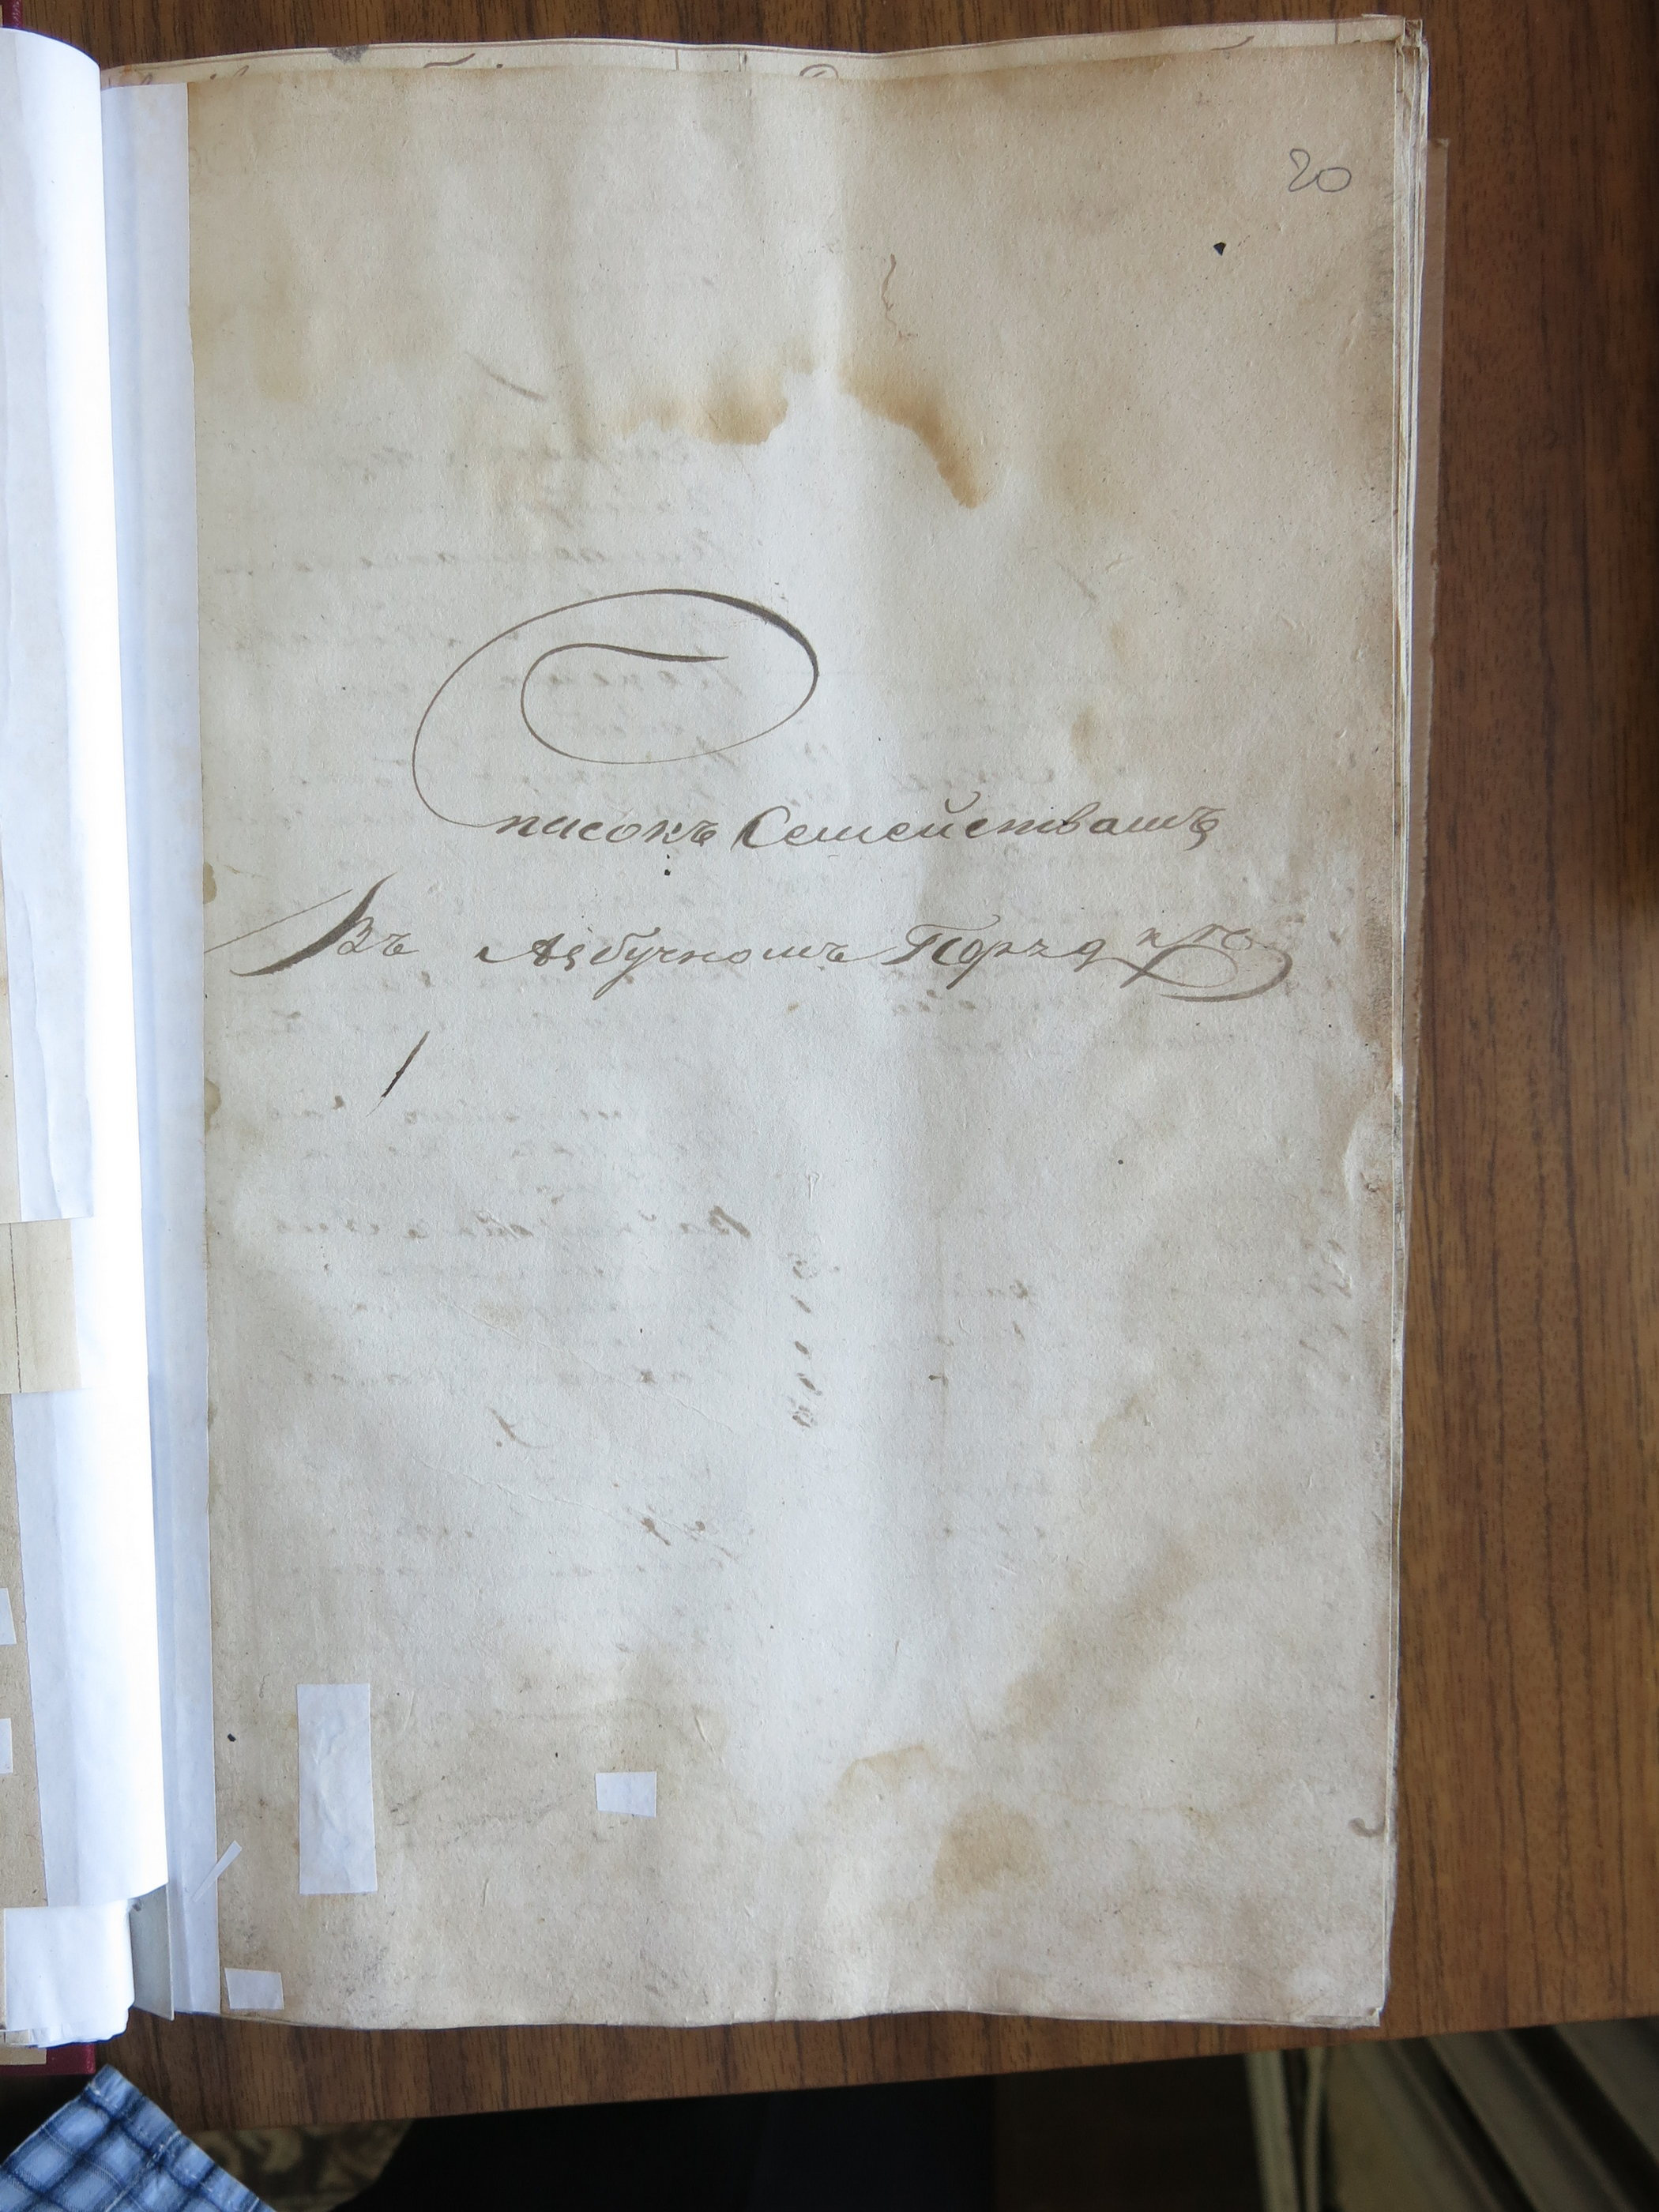 20
Списокъ Семействамъ
Въ Азбучномъ Порядкѣ